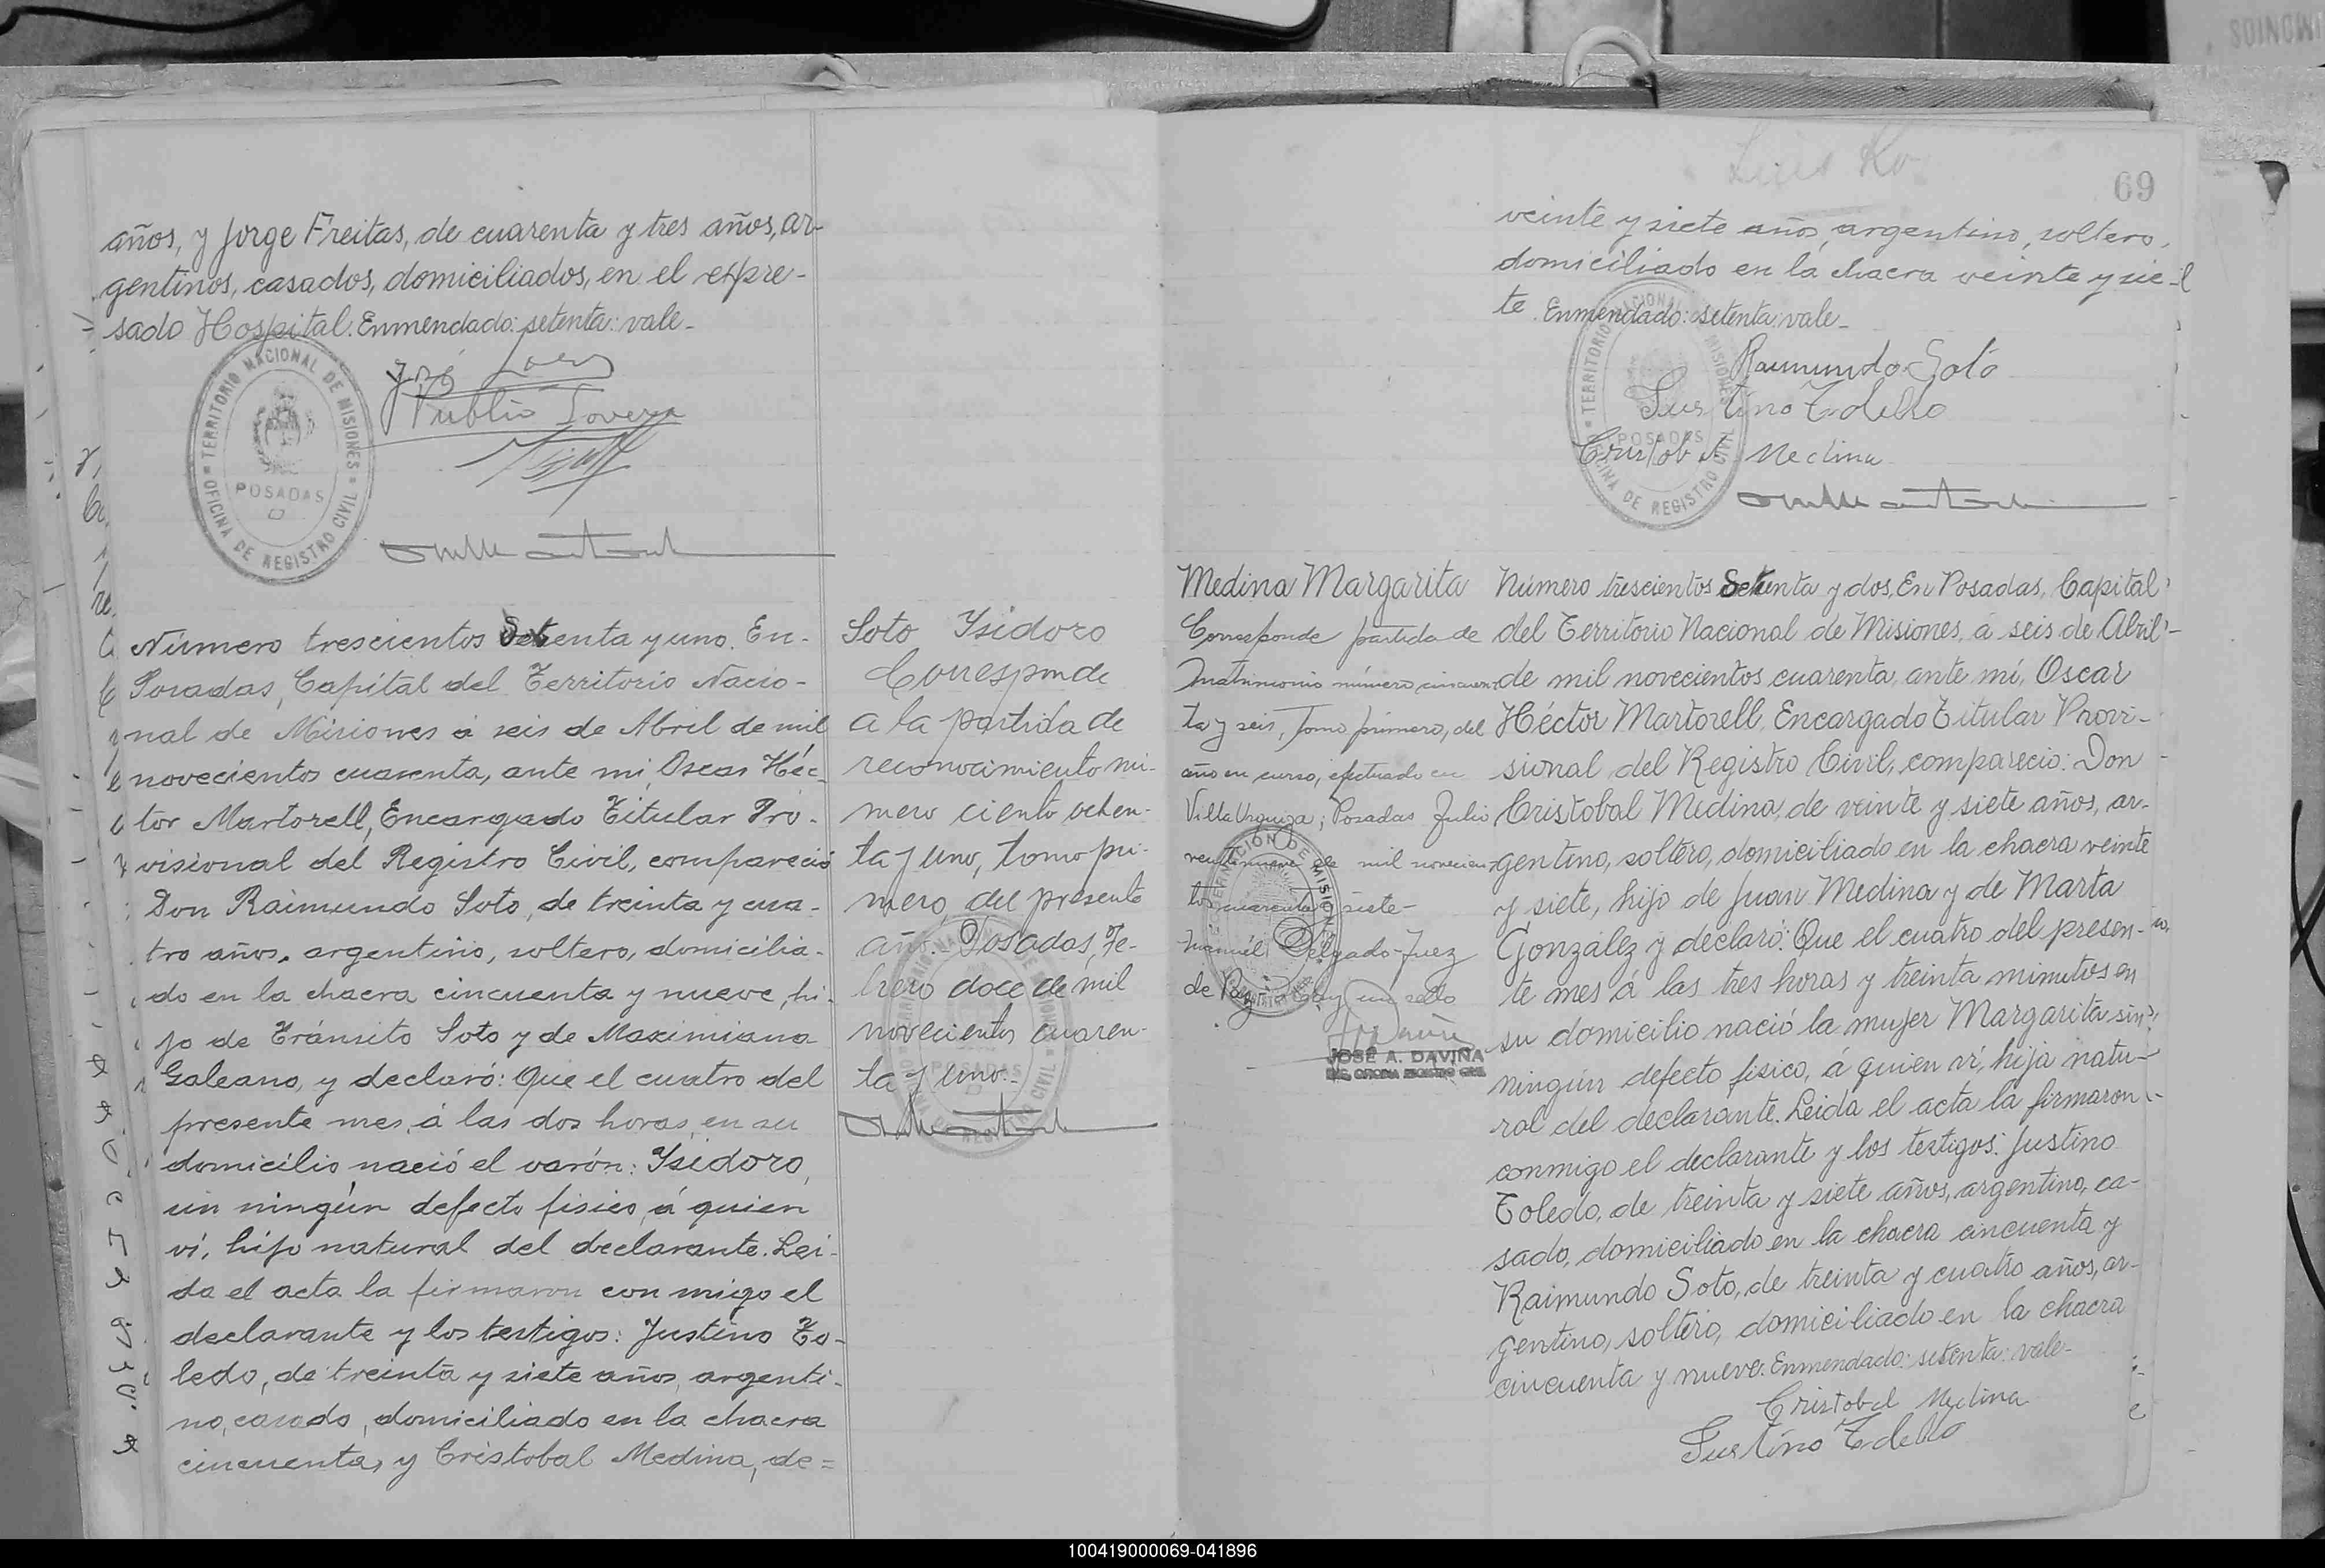 años, y Jorge Freitas, de cuarenta y tres años, ar-
gentinos, casados, domiciliados, en el expre-
sado Hospital. Enmendado: setenta: vale-
TERRITORIO NACIONAL DE MISIONES
OFICINA DE REGISTRO CIVIL
POSADAS
Número trescientos Setenta y uno. En-
Posadas, Capital del Territorio Nacio-
nal de Misiones á seis de Abril de mil
novecientos cuarenta, ante mi, Oscar Héc-
tor Martorell, Encargado Titular Pro-
visional del Registro Civil, compareció
Don Raimundo Soto, de treinta y cua-
tro años, argentino, soltero, domicilia-
do en la chacra cincuenta y nueve, hi-
jo de Tránsito Soto y de Maximiana
Galeano, y declaró: Que el cuatro del
presente mes, á las dos horas, en su
domicilio nació el varón: Ysidoro,
sin ningún defecto fisico, á quien
ví, hijo natural del declarante. Lei-
da el acta la firmaron con migo el
declarante y los testigos: Justino To-
ledo, de treinta y siete años, argenti-
no, casado, domiciliado en la chacra
cincuenta, y Cristobal Medina, de=
Soto Ysidoro
Corresponde
a la partida de
reconocimiento nú-
mero ciento ochen-
ta y uno, tomo pri-
mero, del presente
año. Posadas, Fe-
brero doce de mil
novecientos cuaren-
ta y uno.-
69
veinte y siete años, argentino, soltero,
domiciliado en la chacra veinte y sie-
te. Enmendado: setenta: vale-
TERRITORIO NACIONAL DE MISIONES
OFICINA DE REGISTRO CIVIL
POSADAS
Raimundo Soto
Justino Todello
Cristobal Medina
Medina Margarita
Corresponde partida de
matrimonio número cincuen-
ta y seis, tomo primero, del
año en curso, efectuado en
Villa Urquiza; Posadas Julio
veintinueve de mil novecien-
tos cuarenta y siete-
Manuel Delgado-Juez
de Reg. Hay un sello
JOSÉ A. DAVIÑA
ENC. OFICINA REGISTRO CIVIL
Número trescientos Setenta y dos, En Posadas, Capital
del Territorio Nacional de Misiones, á seis de Abril-
de mil novecientos cuarenta, ante mí, Oscar
Héctor Martorell, Encargado Titular Provi-
sional del Registro Civil, compareció: Don
Cristobal Medina, de veinte y siete años, ar-
gentino, soltero, domiciliado en la chacra veinte
y siete, hijo de Juan Medina y de Marta
González y declaró: Que el cuatro del presen-
te mes á las tres horas y treinta minutos en
su domicilio nació la mujer Margarita sin
ningún defecto fisico, á quien ví, hija natu-
ral del declarante. Leida el acta la firmaron
conmigo el declarante y los testigos: Justino
Toledo, de treinta y siete años, argentino, ca-
sado, domiciliado en la chacra cincuenta y
Raimundo Soto, de treinta y cuatro años, ar-
gentino, soltero, domiciliado en la chacra
cincuenta y nueve. Enmendado: setenta: vale-
Cristobal Medina
Justino Todello
100419000069-041896